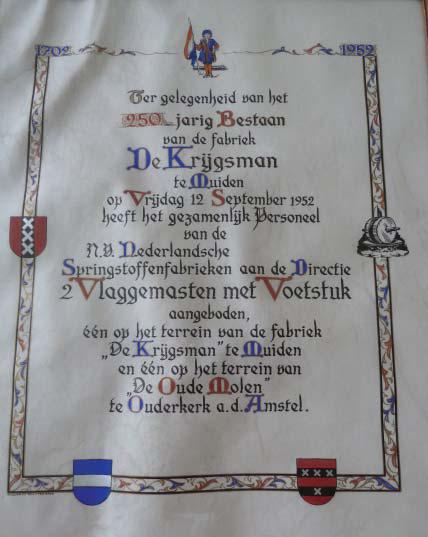 1702 1952
Ter gelegenheid van het
250 jarig Bestaan
van de fabriek
De Krijgsman
te Muiden
op Vrijdag 12 September 1952
heeft het gezamenlijk Personeel
van de
N.V. Nederlandsche
Springstoffenfabrieken aan de Directie
2 Vlaggemasten met Voetstuk
aangeboden,
één op het terrein van de fabriek
„De Krijgsman” te Muiden
en één op het terrein van
„De Oude Molen”
te Ouderkerk a.d. Amstel.